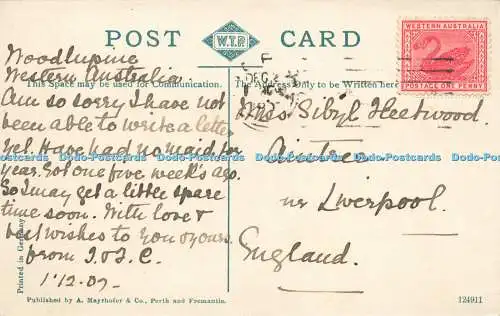 POST
W.T.P.
CARD
WESTERN AUSTRALIA
POSTAGE ONE PENNY
DEC 2
This Space may be used for Communication.
The Address Only to be Written here
Woodlupine
Western Australia.
Am so sorry I have not
been able to write a letter
yet. Have had no maid for
year. Got one five week's ago.
So I may get a little spare
time soon. With love &
best wishes to you & yours
from I.F.C.
1.12.07
Miss Sibyl Fleetwood.
Aintree
nr Liverpool.
England.
Printed in Germany
Published by A. Mayrhofer & Co., Perth and Fremantle.
124911
Dodo-Postcards Dodo-Postcards Dodo-Postcards Dodo-Postcards Dodo-Postcards Dodo-Postcards